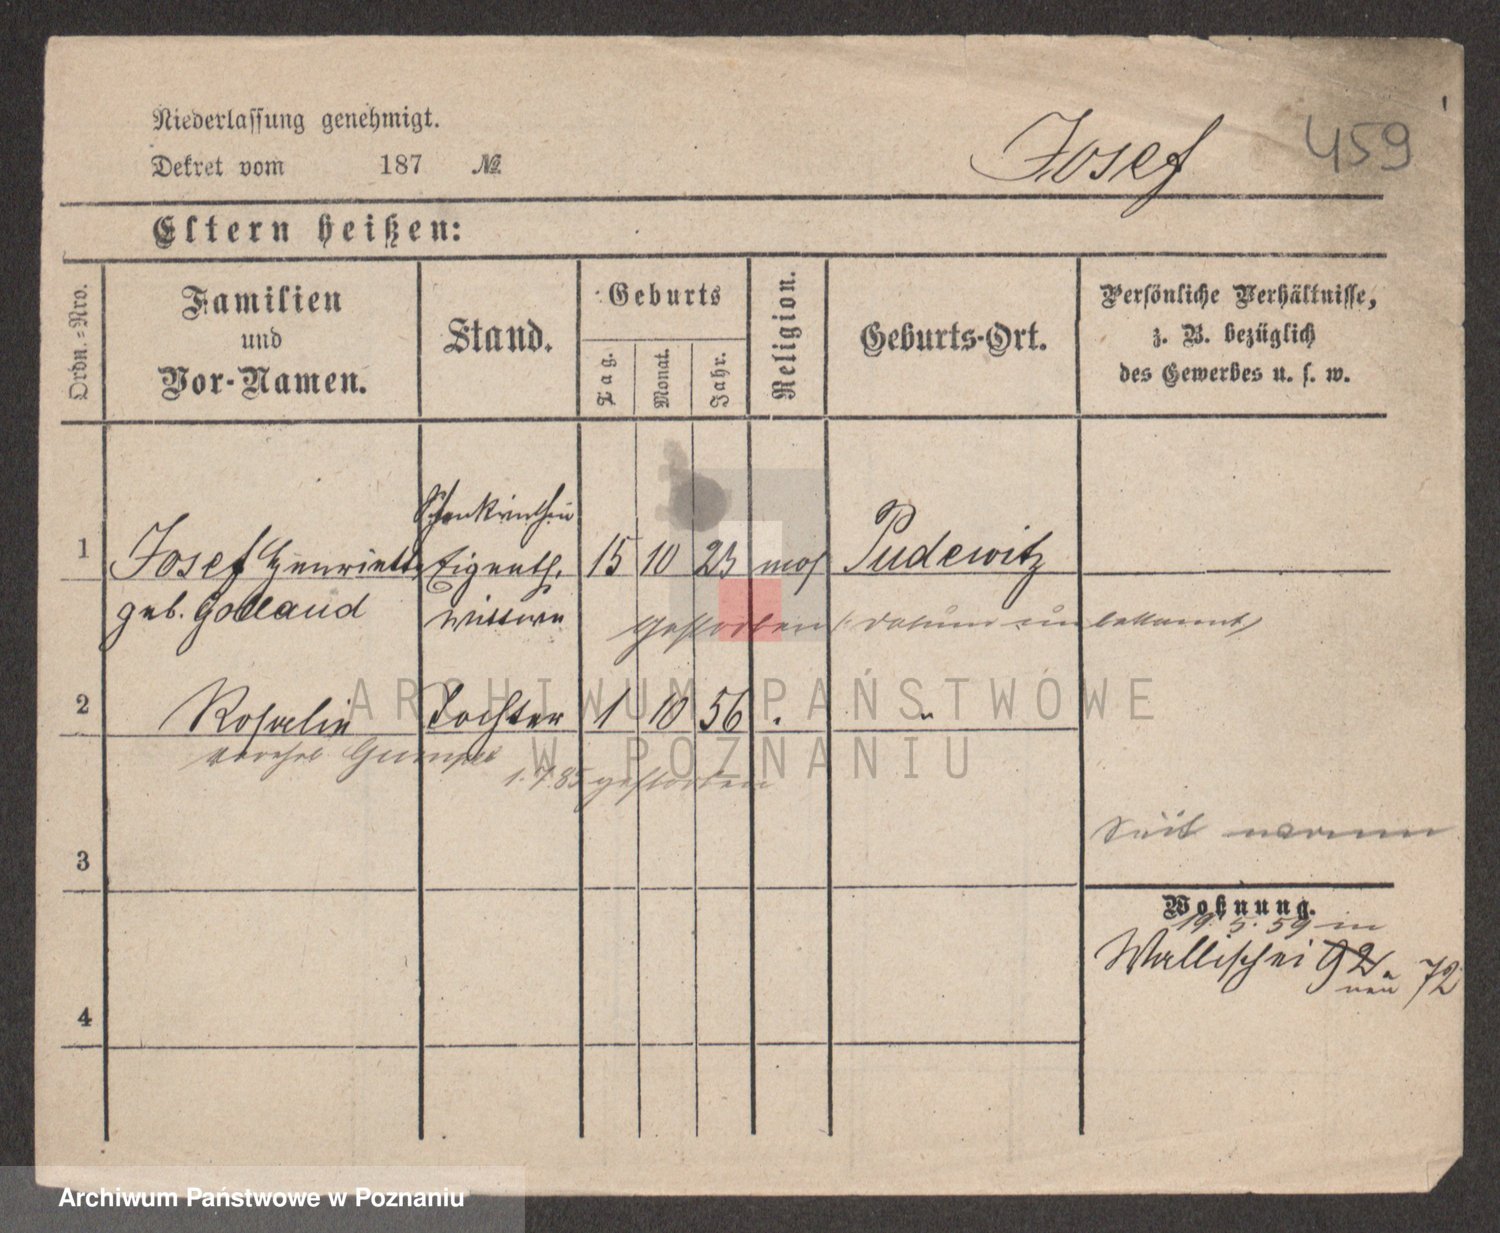 Niederlassung genehmigt.
Dekret vom 187 №
Josef
459
Eltern heißen:
Ordn.-Nro.
Familien und Vor-Namen.
Stand.
Geburts
Tag.
Monat.
Jahr.
Religion.
Geburts-Ort.
Persönliche Verhältnisse,
z. B. bezüglich
des Gewerbes u. s. w.
Schenkwirthin
1 Josef Henriette Eigenth. 15 10 23 mos Pudewitz
geb. Golland Wittwe
gestorben (: datum unbekannt)
2 Rosalie Tochter 1 10 56 " "
verehel
1.7.85 gestorben
Seit wann
3
Wohnung.
19. 5. 59 in
Wallischei 92 neu 72
4
ARCHIWUM PAŃSTWOWE
W POZNANIU
Archiwum Państwowe w Poznaniu